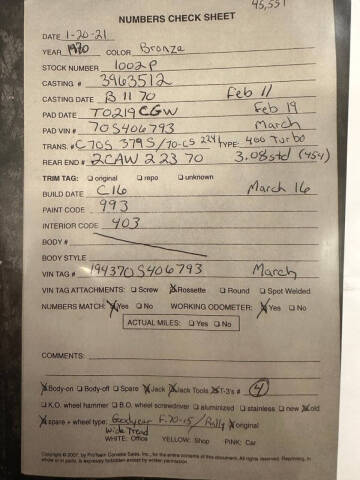 45,551
NUMBERS CHECK SHEET
DATE 1-20-21
YEAR 1970 COLOR Bronze
STOCK NUMBER 1002P
CASTING # 3963512
CASTING DATE B 11 70 Feb 11
PAD DATE T0219CGW Feb 19
PAD VIN # 70S406793 March
TRANS. # C70S 379S/70-CS 224 TYPE: 400 Turbo
REAR END # 2CAW 2 23 70 3.08 std (454)
TRIM TAG: □ original □ repo □ unknown
BUILD DATE C16 March 16
PAINT CODE 993
INTERIOR CODE 403
BODY #
BODY STYLE
VIN TAG # 194370S406793 March
VIN TAG ATTACHMENTS: □ Screw ☒ Rossette □ Round □ Spot Welded
NUMBERS MATCH: ☒ Yes □ No WORKING ODOMETER: ☒ Yes □ No
ACTUAL MILES: □ Yes □ No
COMMENTS:
☒ Body-on □ Body-off □ Spare ☒ Jack ☒ Jack Tools ☒ T-3's # 4
□ K.O. wheel hammer □ B.O. wheel screwdriver □ aluminized □ stainless □ new ☒ old
☒ spare + wheel type: Goodyear F-70-15 / Rally ☒ original
Wide Tread
WHITE: Office YELLOW: Shop PINK: Car
Copyright © 2007, by ProTeam Corvette Sales, Inc., for the entire contents of this document. All rights reserved. Reprinting, in
whole or in parts, is expressly forbidden except by written permission.